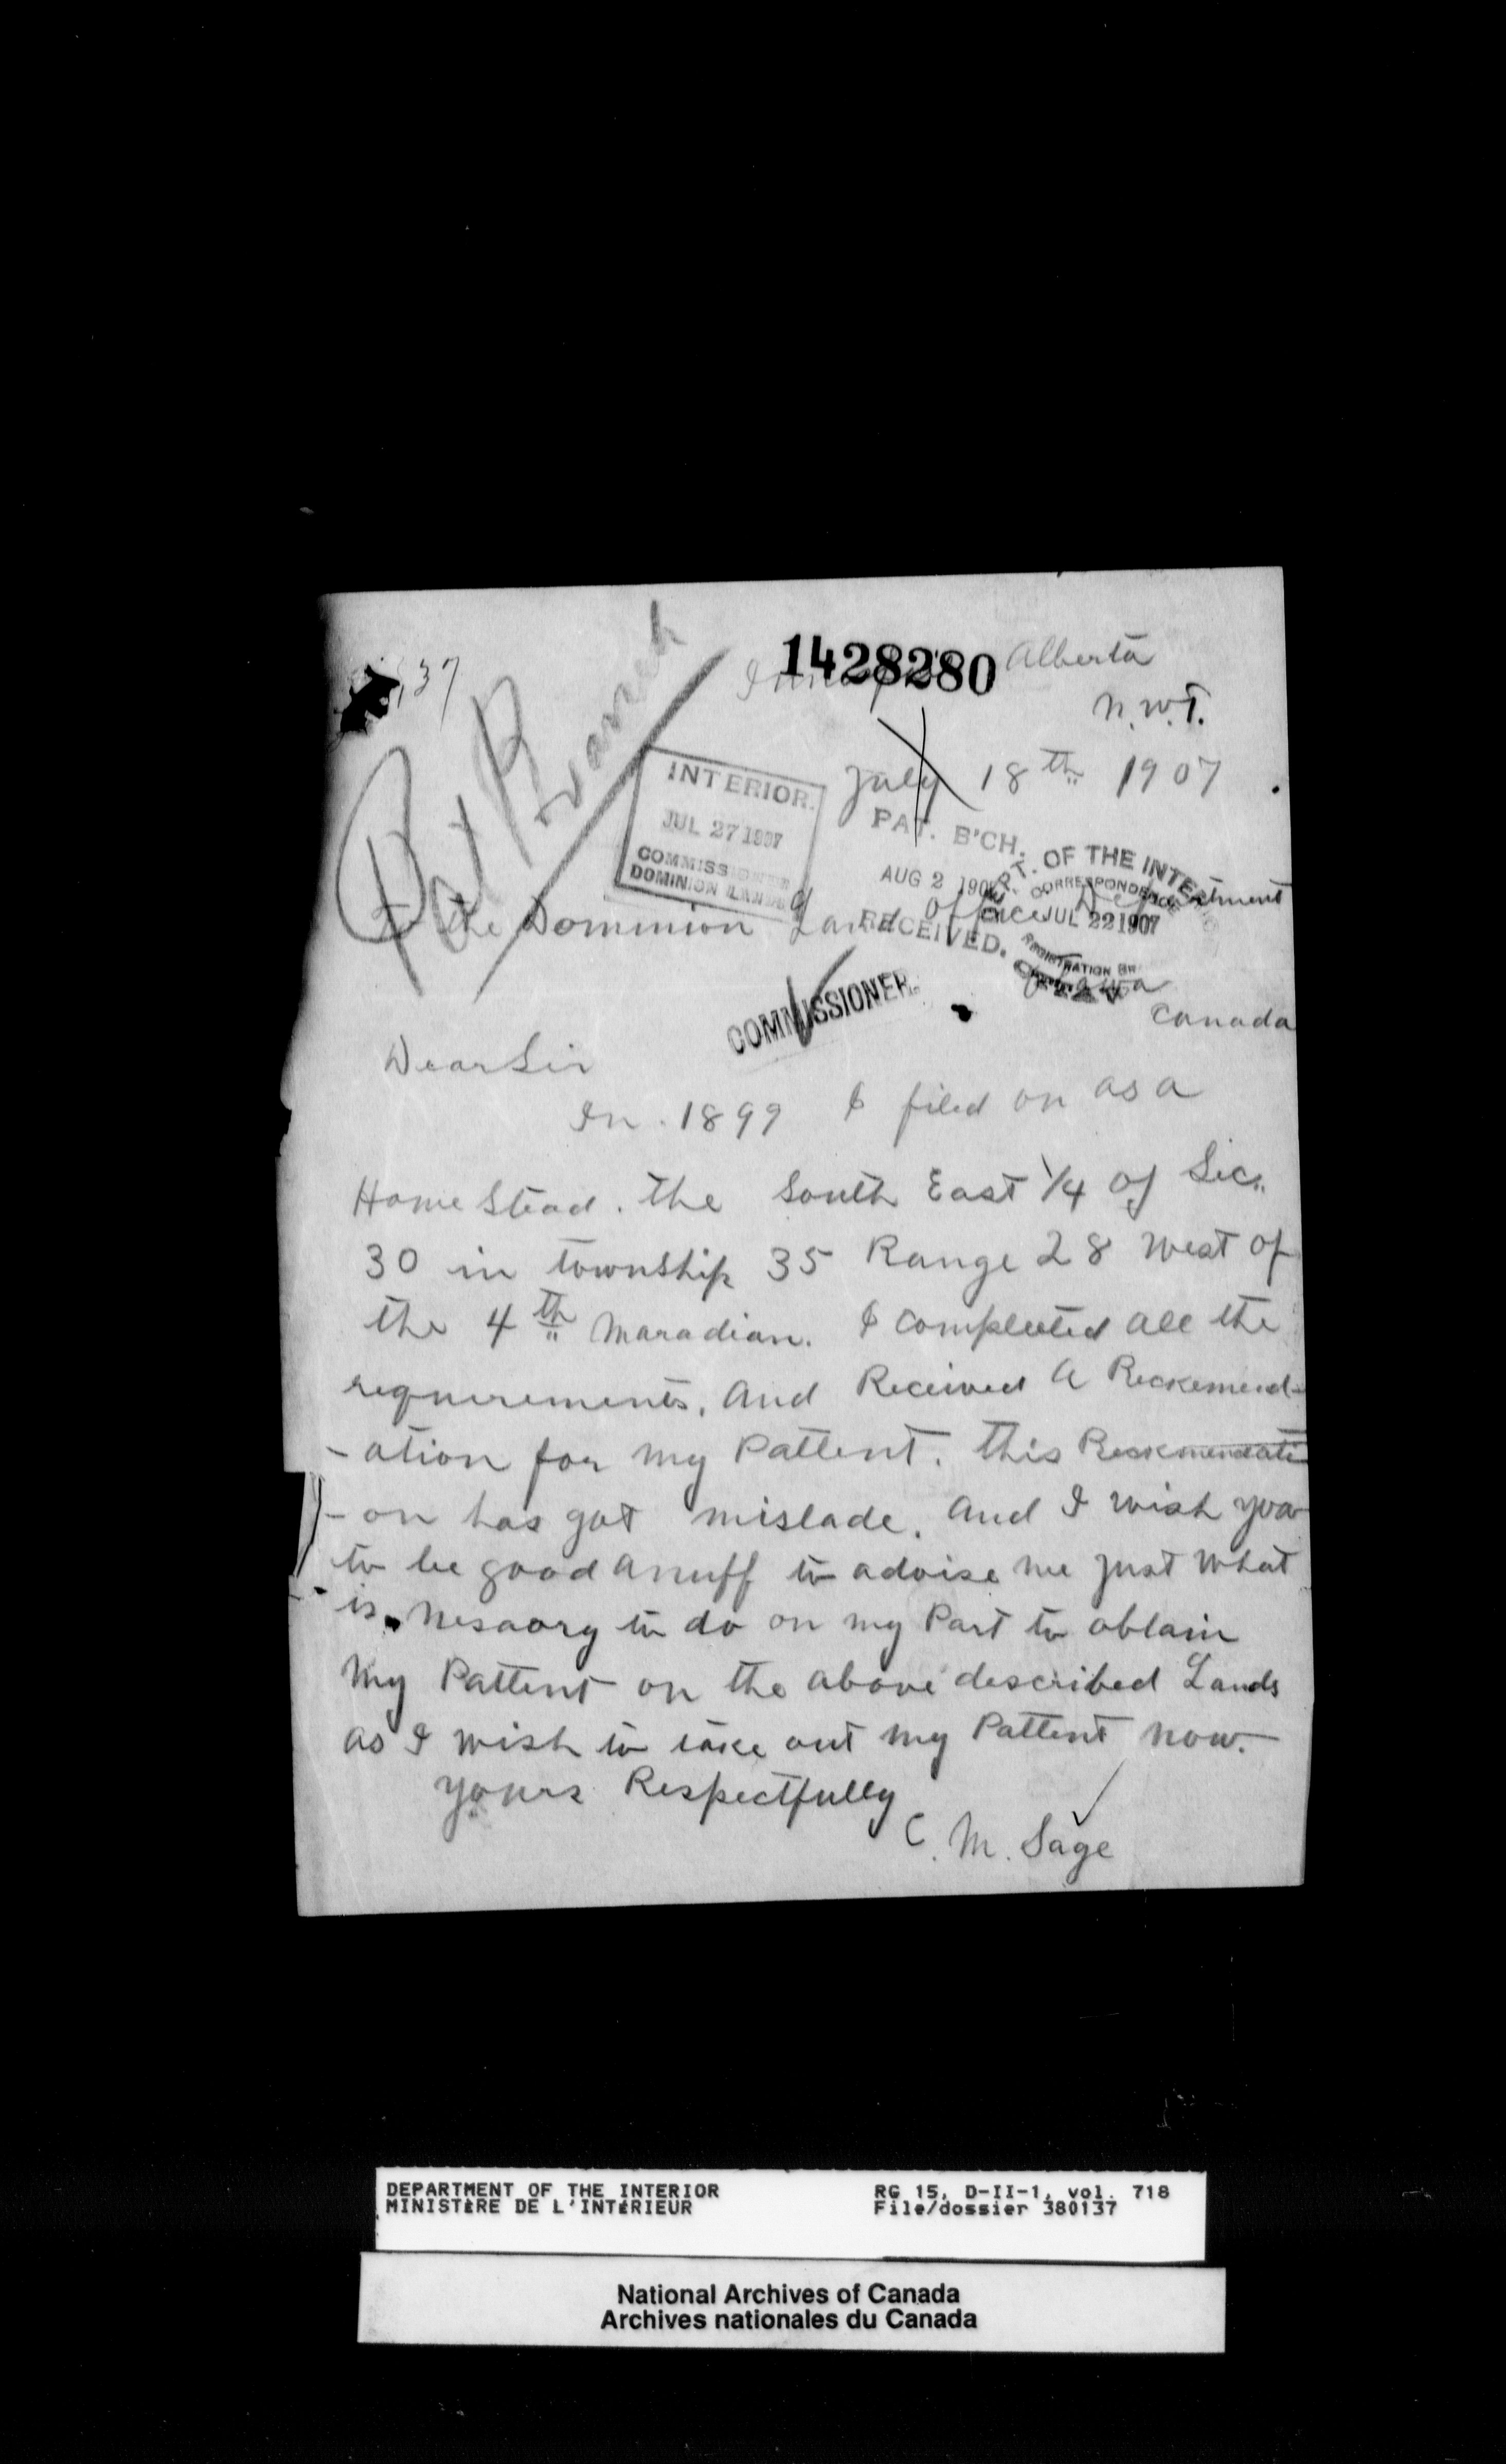 1428280
Alberta
N.W.T.
,37
Pat Branch
July 18th 1907
INTERIOR.
JUL 27 1907
COMMISSIONER
DOMINION LANDS
PAT. B'CH.
AUG 2 190
RECEIVED.
DEPT. OF THE INTERIOR
CORRESPONDENCE
JUL 22 1907
REGISTRATION BR
To the Dominion Land Office Department
Ottawa
Canada
COMMISSIONER.
Dear Sir
In. 1899 I filed on as a
Home Stead. the South East 1/4 of Sec.
30 in township 35 Range 28 West of
the 4th Maradian. I compleeted all the
requirements, and Received A Reckemend-
-ation for my Pattent. this Reckmendati
-on has got mislade. and I wish you
to be good anuff to advise me just what
is nesaory to do on my Part to obtain
my Pattent on the above described Lands
as I wish to take out my Pattent now.
yours Respectfully
C. M. Sage
DEPARTMENT OF THE INTERIOR RG 15, D-II-1, vol. 718
MINISTÈRE DE L'INTÉRIEUR File/dossier 380137
National Archives of Canada
Archives nationales du Canada